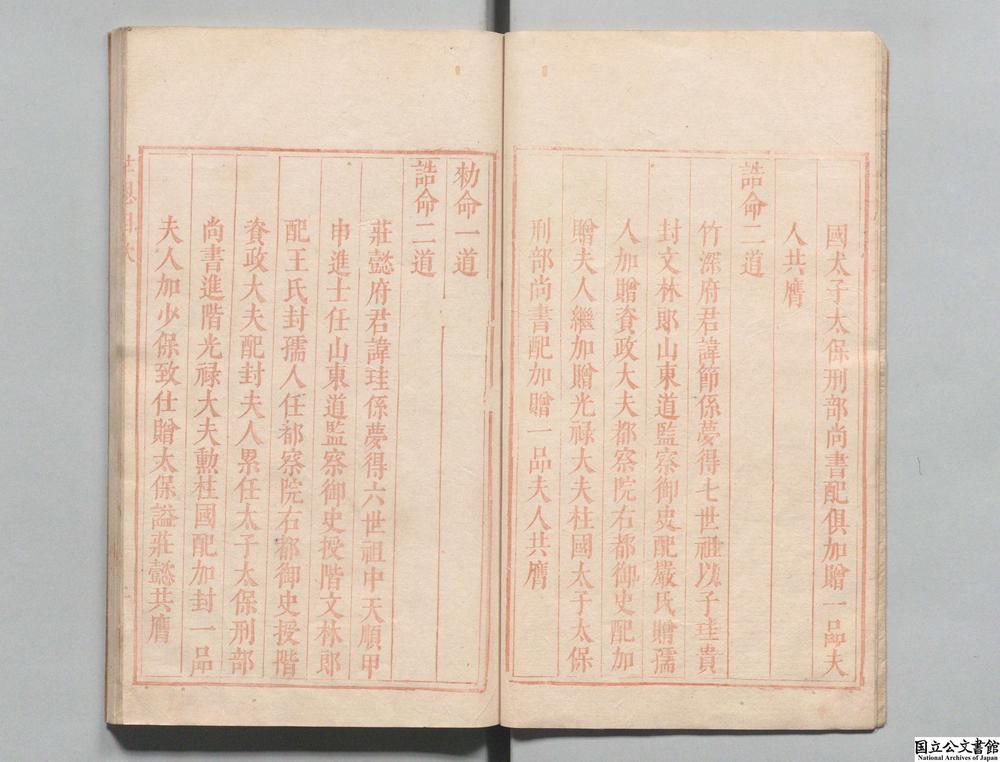 國太子太保刑部尚書配俱加贈一品夫
人共膺
誥命二道
竹深府君諱節係夢得七世祖以子珪貴
封文林郎山東道監察御史配嚴氏贈孺
人加贈資政大夫都察院右都御史配加
贈夫人繼加贈光祿大夫柱國太子太保
刑部尚書配加贈一品夫人共膺
勑命一道
誥命二道
莊懿府君諱珪係夢得六世祖中天順甲
申進士任山東道監察御史授階文林郎
配王氏封孺人任都察院右都御史授階
資政大夫配封夫人累任太子太保刑部
尚書進階光祿大夫勳柱國配加封一品
夫人加少保致仕贈太保諡莊懿共膺
世恩目次
国立公文書館
National Archives of Japan